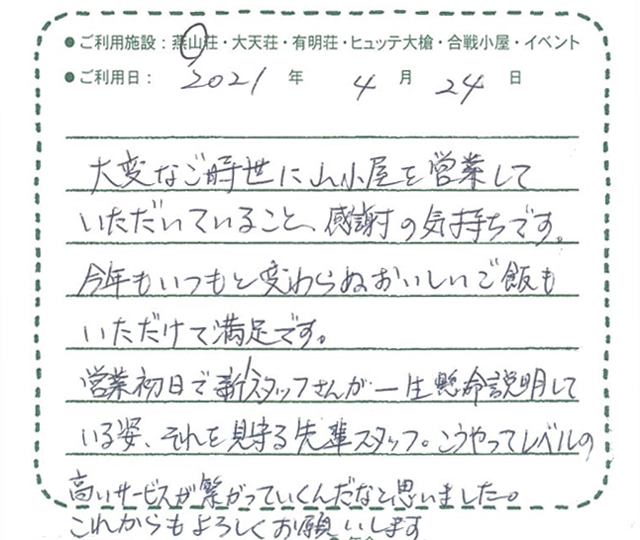 ●ご利用施設：燕山荘・大天荘・有明荘・ヒュッテ大槍・合戦小屋・イベント
●ご利用日： 2021 年 4 月 24 日
大変なご時世に山小屋を営業して
いただいていること、感謝の気持ちです。
今年もいつもと変わらぬおいしいご飯も
いただけて満足です。
営業初日で新人スタッフさんが一生懸命説明して
いる姿、それを見守る先輩スタッフ。こうやってレベルの
高いサービスが繋がっていくんだなと思いました。
これからもよろしくお願いいします